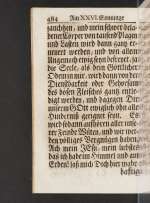 484 Am XXVI. Sonntage
gantzhen, und mein schwer bela-
dener Cörper von tausend Plagen
und Lasten wird dann gantz er-
neuert werden, und von allem
Ungemach ewig seyn befreyet. Ja
die Seele, als dein Göttlicher
Odem in mir, wird dann von der
Dienstbarkeit oder Gehorsam
des bösen Fleisches gantz entle-
diget werden, und dargegen Dir
unserm GOtt ewiglich ohn alle
Hinderniß geeignet seyn. Es
wird sodann aufhören aller unse-
rer Feinde Wüten, und wir wer-
den völliges Vergnügen haben.
Ach mein JEsu, mein liebster
das ich habe im Himmel und auf
Erden! laß mich Doch hier nicht
hafftig